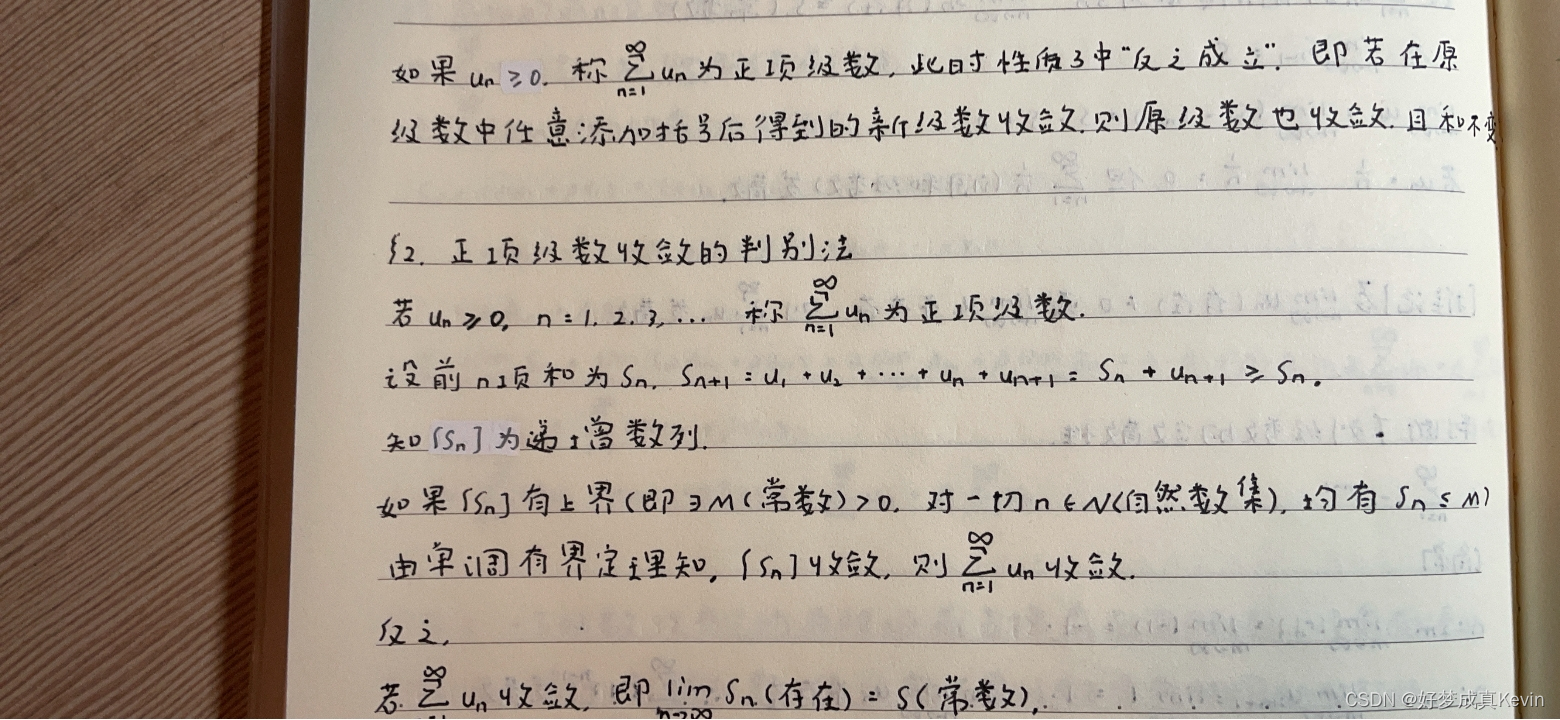 如果 uₙ ≥ 0, 称 ∑_{n=1}^{∞} uₙ 为正项级数, 此时性质3中“反之成立”. 即若在原
级数中任意添加括号后得到的新级数收敛, 则原级数也收敛. 且和不变
§2. 正项级数收敛的判别法
若 uₙ ≥ 0, n = 1, 2, 3, ... 称 ∑_{n=1}^{∞} uₙ 为正项级数.
设前n项和为 Sₙ, Sₙ₊₁ = u₁ + u₂ + ··· + uₙ + uₙ₊₁ = Sₙ + uₙ₊₁ ≥ Sₙ.
知 {Sₙ} 为递增数列.
如果 {Sₙ} 有上界 (即 ∃ M (常数) > 0, 对一切 n ∈ N (自然数集), 均有 Sₙ ≤ M)
由单调有界定理知, {Sₙ} 收敛, 则 ∑_{n=1}^{∞} uₙ 收敛.
反之,
若 ∑_{n=1}^{∞} uₙ 收敛, 即 lim_{n→∞} Sₙ (存在) = S (常数),
CSDN @好梦成真Kevin